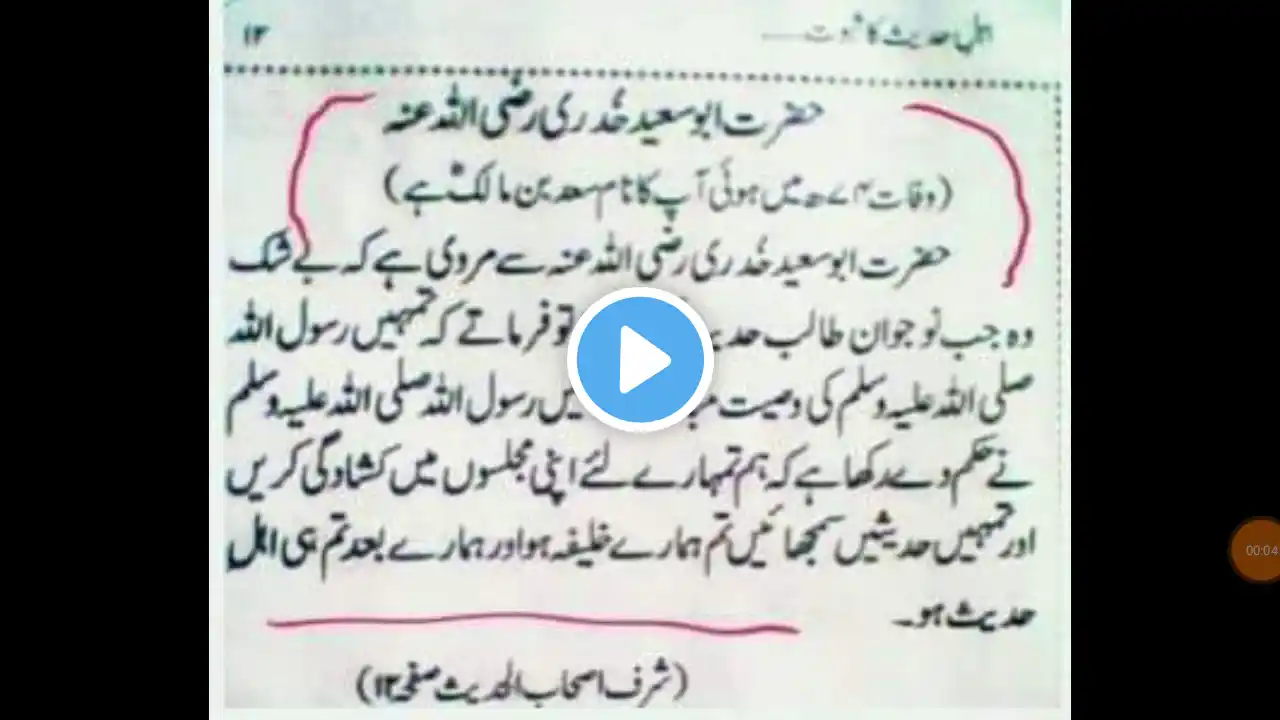 اہل حدیث کا ثبوت ۱۳
حضرت ابوسعید خُدری رضی اللہ عنہ
(وفات ۷۴ھ میں ہوئی آپ کا نام سعد بن مالکؓ ہے)
حضرت ابوسعید خُدری رضی اللہ عنہ سے مروی ہے کہ بے شک
وہ جب نوجوان طالب تو فرماتے کہ تمہیں رسول اللہ
صلی اللہ علیہ وسلم کی وصیت رسول اللہ صلی اللہ علیہ وسلم
نے حکم دے رکھا ہے کہ ہم تمہارے لئے اپنی مجلسوں میں کشادگی کریں
اور تمہیں حدیثیں سمجھائیں تم ہمارے خلیفہ ہو اور ہمارے بعد تم ہی اہل
حدیث ہو۔
(شرف اصحاب الحدیث صفحہ ۱۲)
00:04